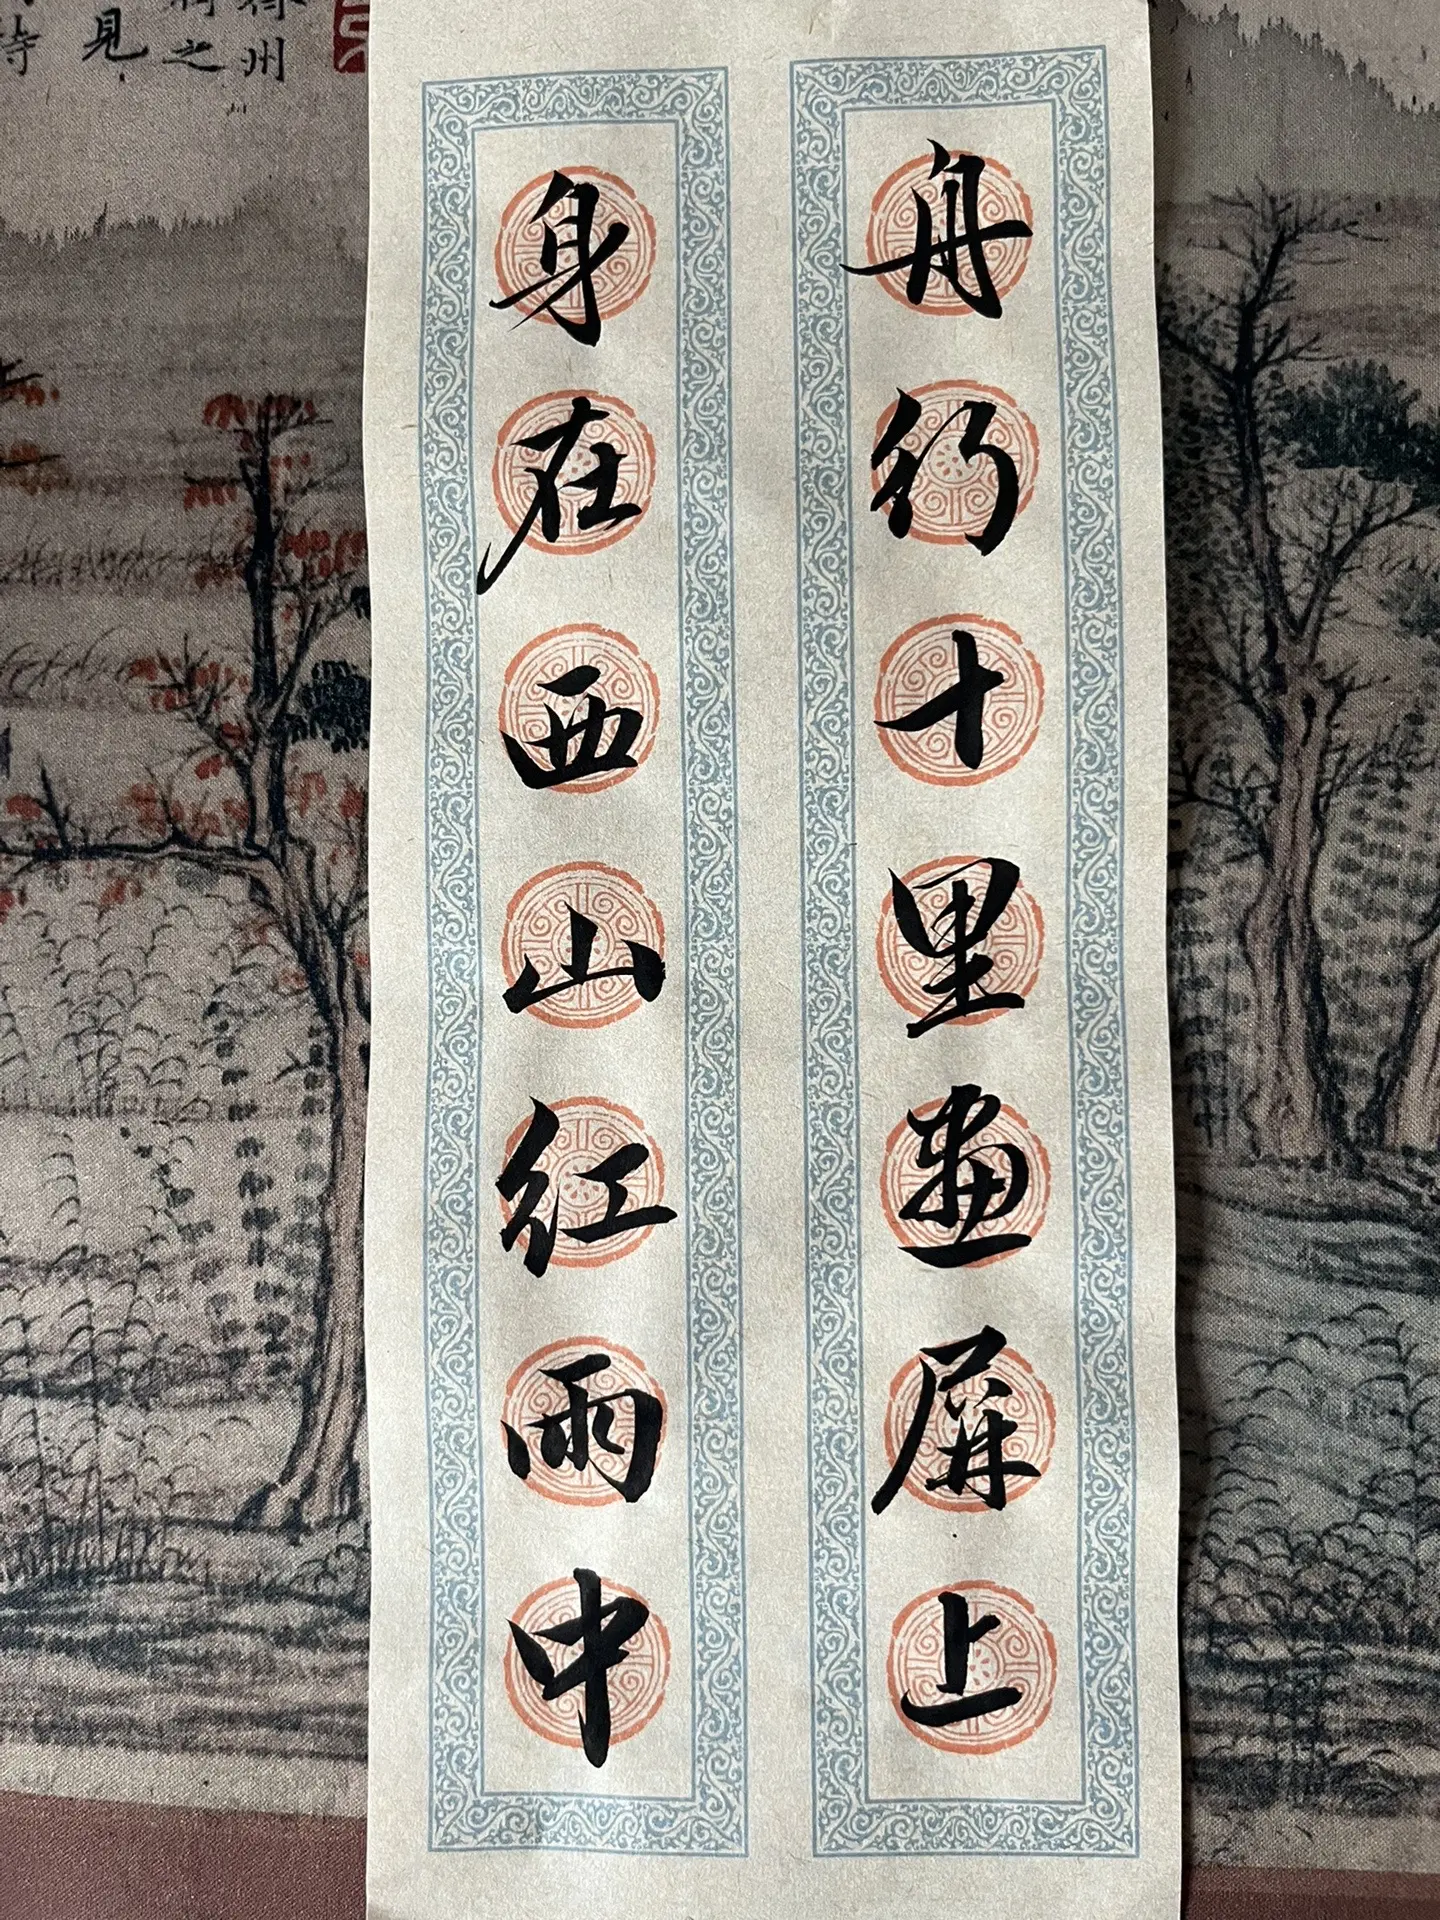 舟行十里畫屏上
身在西山紅雨中
州
之
見